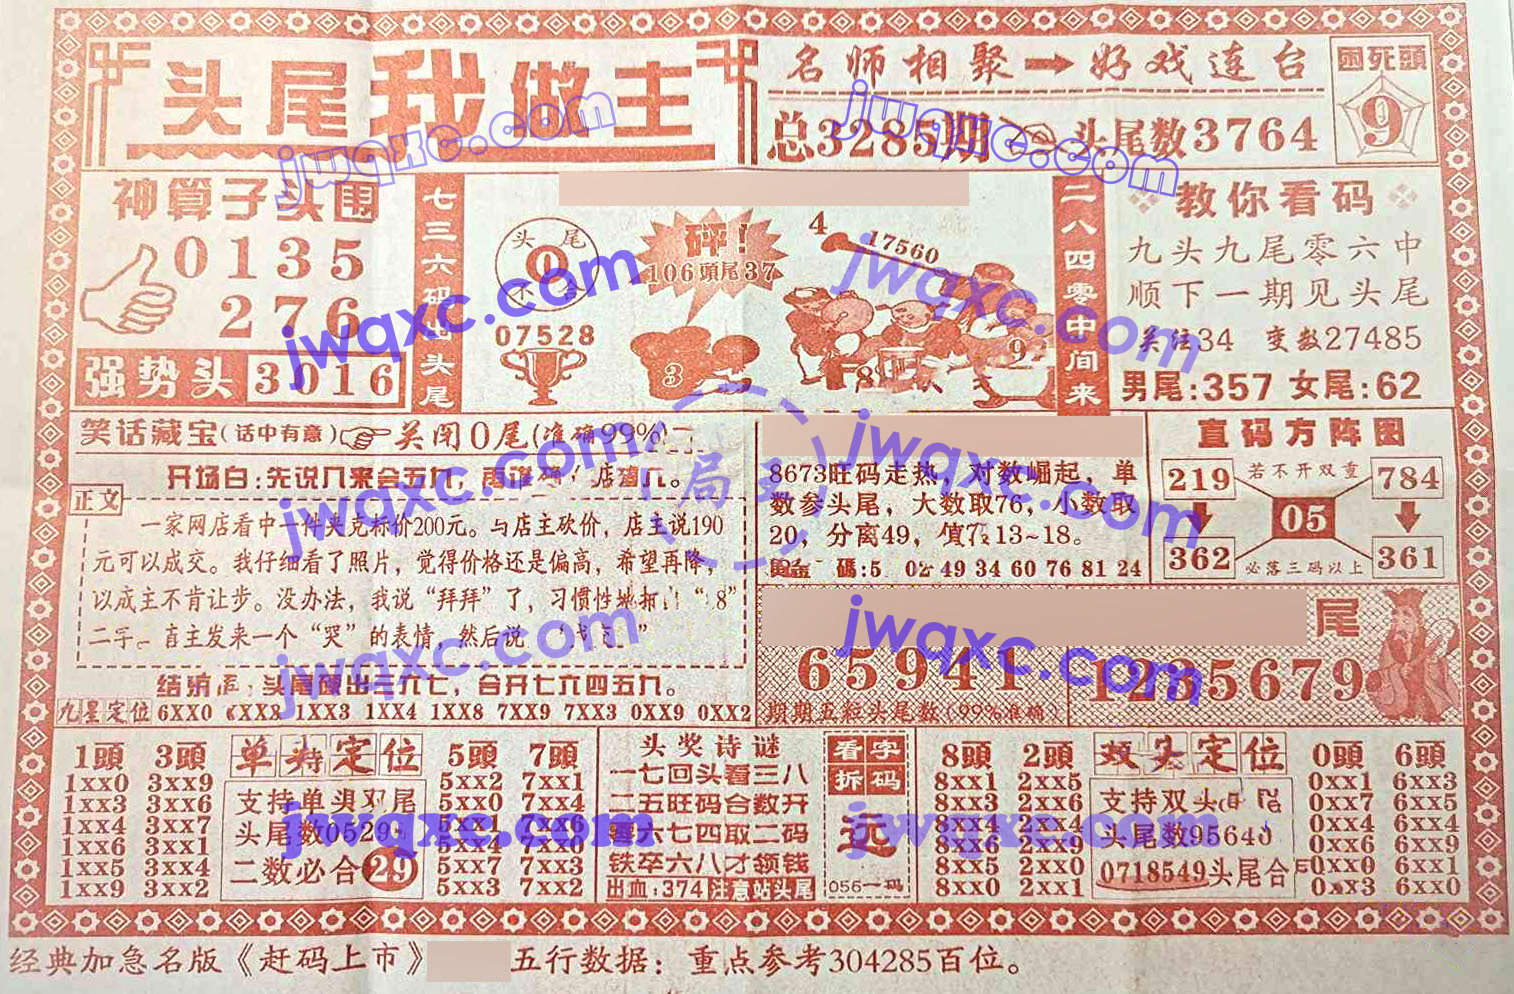 头尾我做主
名师相聚→好戏连台
总3285期 头尾数3764
困死頭
9
神算子头围
0135
276
强势头 3016
七三六码出头尾
头尾
0
不合
07528
砰!
106頭尾37
3
4
17560
9
二八四零中间来
教你看码
九头九尾零六中
顺下一期见头尾
关注34 变数27485
男尾:357 女尾:62
笑话藏宝(话中有意) 关闭0尾(准确99%)
开场白:先说八来会五九,
正文
一家网店看中一件夹克标价200元。与店主砍价,店主说190
元可以成交。我仔细看了照片,觉得价格还是偏高,希望再降,
以成主不肯让步。没办法,我说“拜拜”了,习惯性地 8”
二字。 主发来一个“哭”的表情,然后说
头尾 出三六七,合开七六四五九。
九星定位 6XX0 6XX8 1XX3 1XX4 1XX8 7XX9 7XX3 0XX9 0XX2
8673旺码走热,对数崛起,单
数参头尾,大数取76,小数取
20,分离49, 13~18。
碼:5 02 49 34 60 76 81 24
直码方阵图
219 若不开双重 784
05
362 必落三码以上 361
尾
65941
1235679
期期五粒头尾数(99%准确)
单头定位
1頭 3頭
1xx0 3xx9
1xx3 3xx6
1xx4 3xx7
1xx6 3xx1
1xx5 3xx4
1xx9 3xx2
支持单头双尾
头尾数0529
二数必合29
5頭 7頭
5xx2 7xx1
5xx0 7xx4
5xx1 7xx6
5xx4 7xx0
5xx7 7xx3
5xx3 7xx2
头奖诗谜
一七回头看三八
二五旺码合数开
零六七四取二码
铁卒六八才领钱
出血:374 注意站头尾
看字拆码
远
056一码
双头定位
8頭 2頭
8xx1 2xx5
8xx3 2xx6
8xx4 2xx4
8xx6 2xx9
8xx5 2xx0
8xx0 2xx1
支持双头
头尾数95640
0718549头尾合
0頭 6頭
0xx1 6xx3
0xx7 6xx5
0xx4 6xx4
0xx6 6xx9
0xx0 6xx1
0xx3 6xx0
经典加急名版《赶码上市》 五行数据:重点参考304285百位。
jwqxc.com
jwqxc.com
jwqxc.com
jwqxc.com
jwqxc.com
jwqxc.com
jwqxc.com
jwqxc.com
jwqxc.com
jwqxc.com